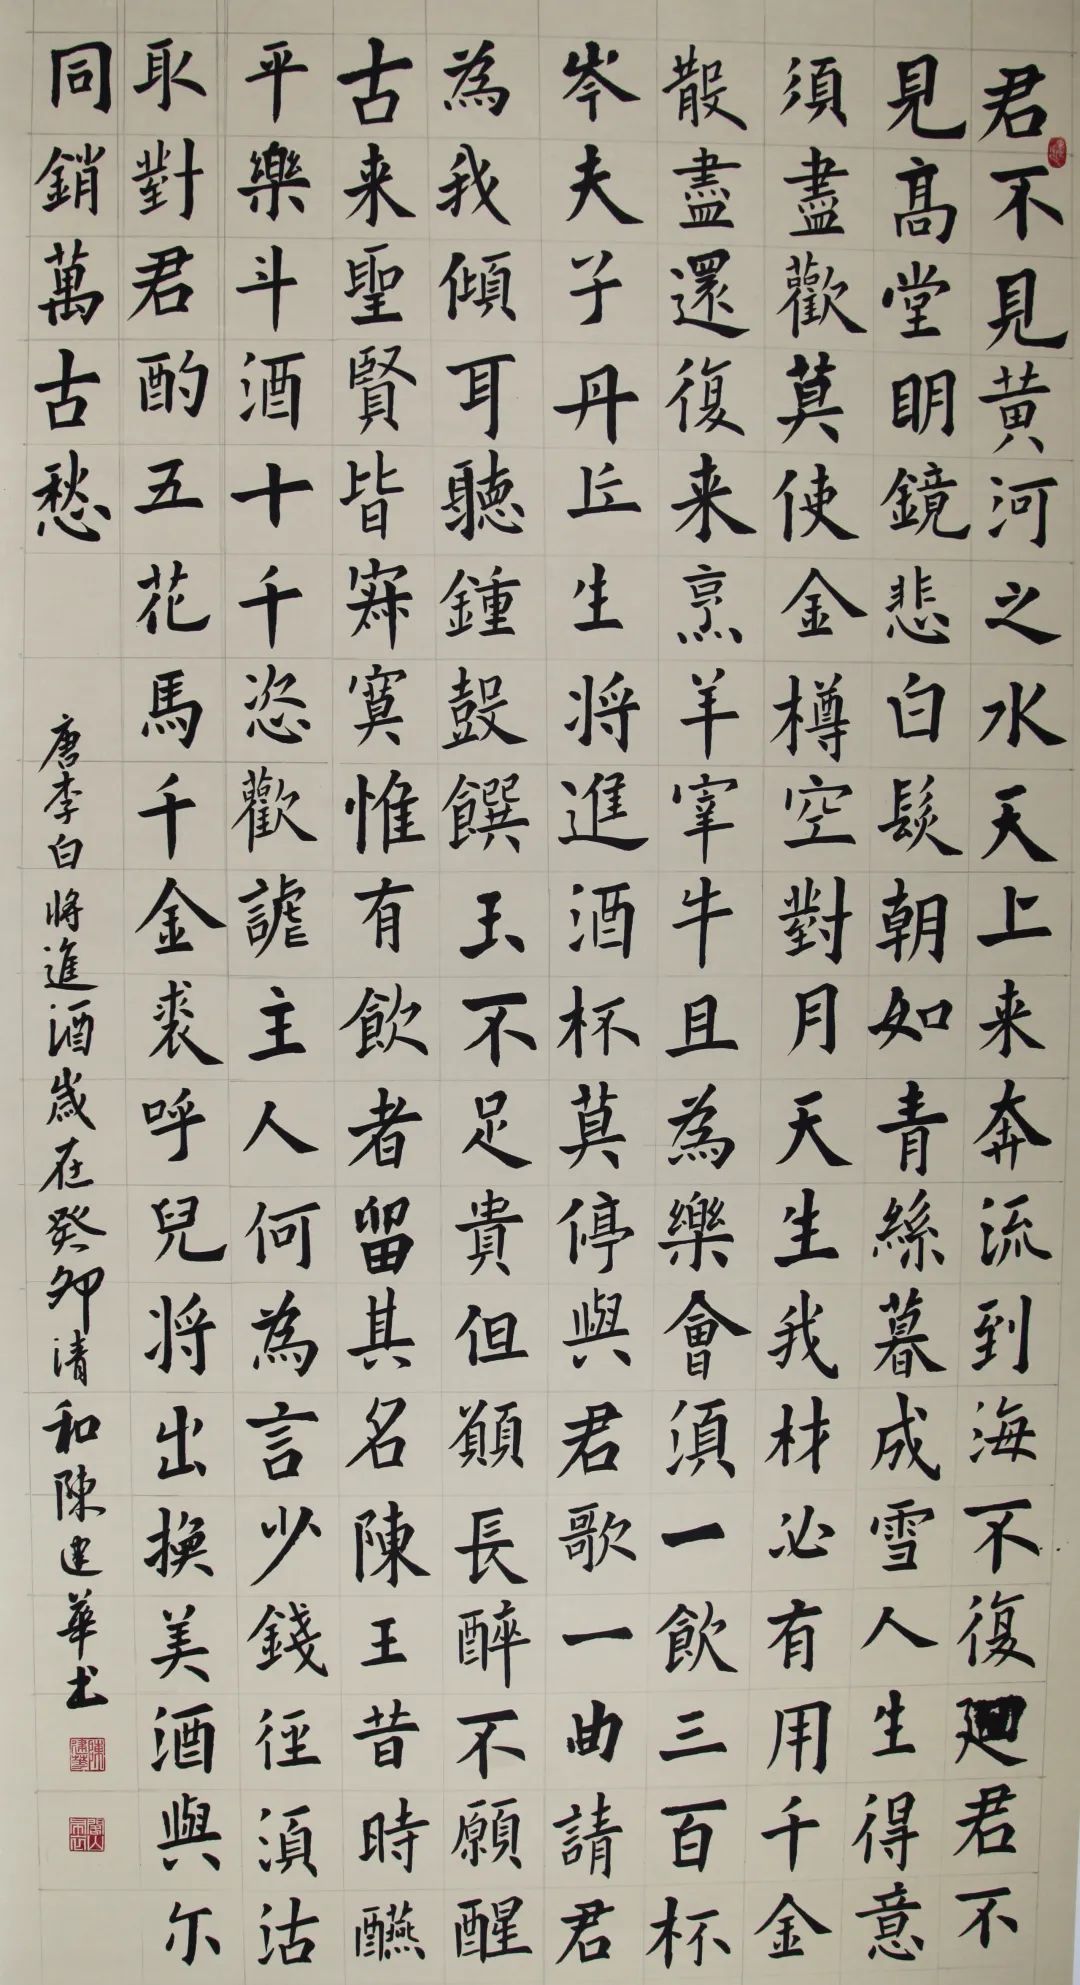 君不見黃河之水天上来奔流到海不復廻君不
見高堂明鏡悲白髮朝如青絲暮成雪人生得意
須盡歡莫使金樽空對月天生我材必有用千金
散盡還復来烹羊宰牛且為樂會須一飲三百杯
岑夫子丹丘生将進酒杯莫停與君歌一曲請君
為我傾耳聽鍾鼓饌玉不足貴但願長醉不願醒
古来聖賢皆寂寞惟有飲者留其名陳王昔時醼
平樂斗酒十千恣歡謔主人何為言少錢徑須沽
取對君酌五花馬千金裘呼兒将出換美酒與尔
同銷萬古愁
唐李白将進酒歲在癸卯清和陳建華書